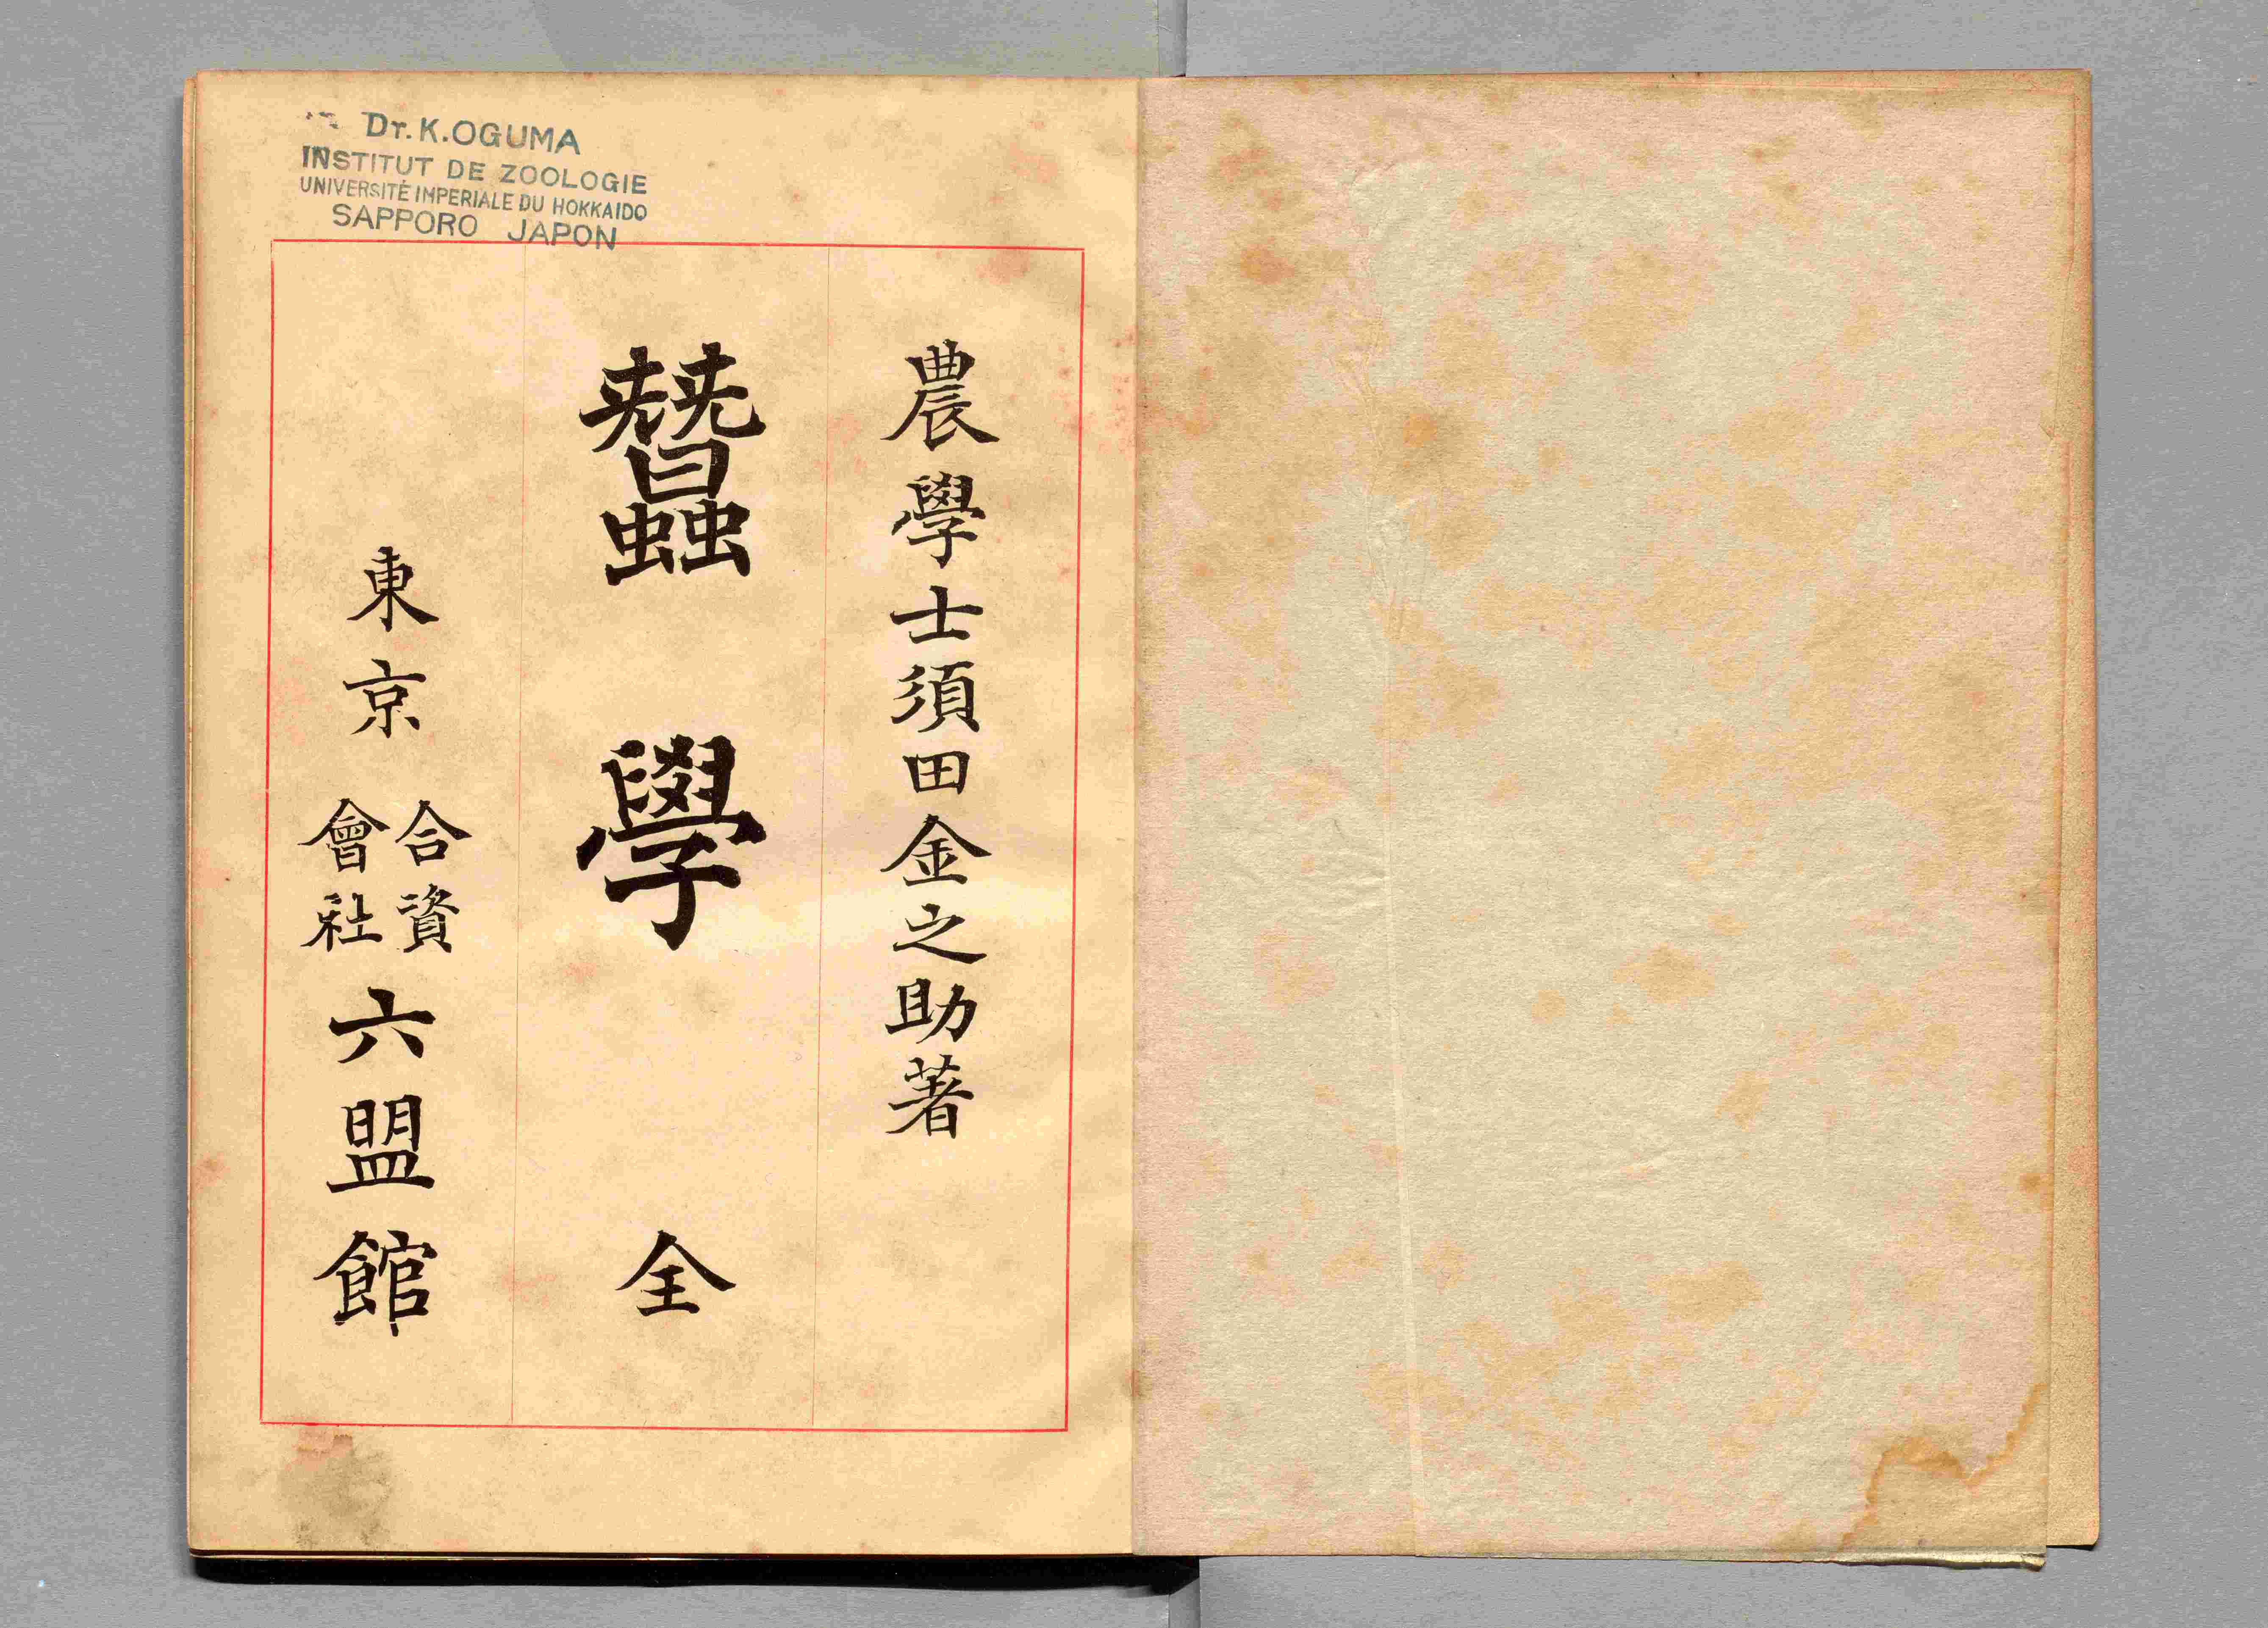 Dr. K. OGUMA
INSTITUT DE ZOOLOGIE
UNIVERSITÉ IMPERIALE DU HOKKAIDO
SAPPORO JAPON
農學士須田金之助著
蠶學 全
東京 合資會社 六盟館